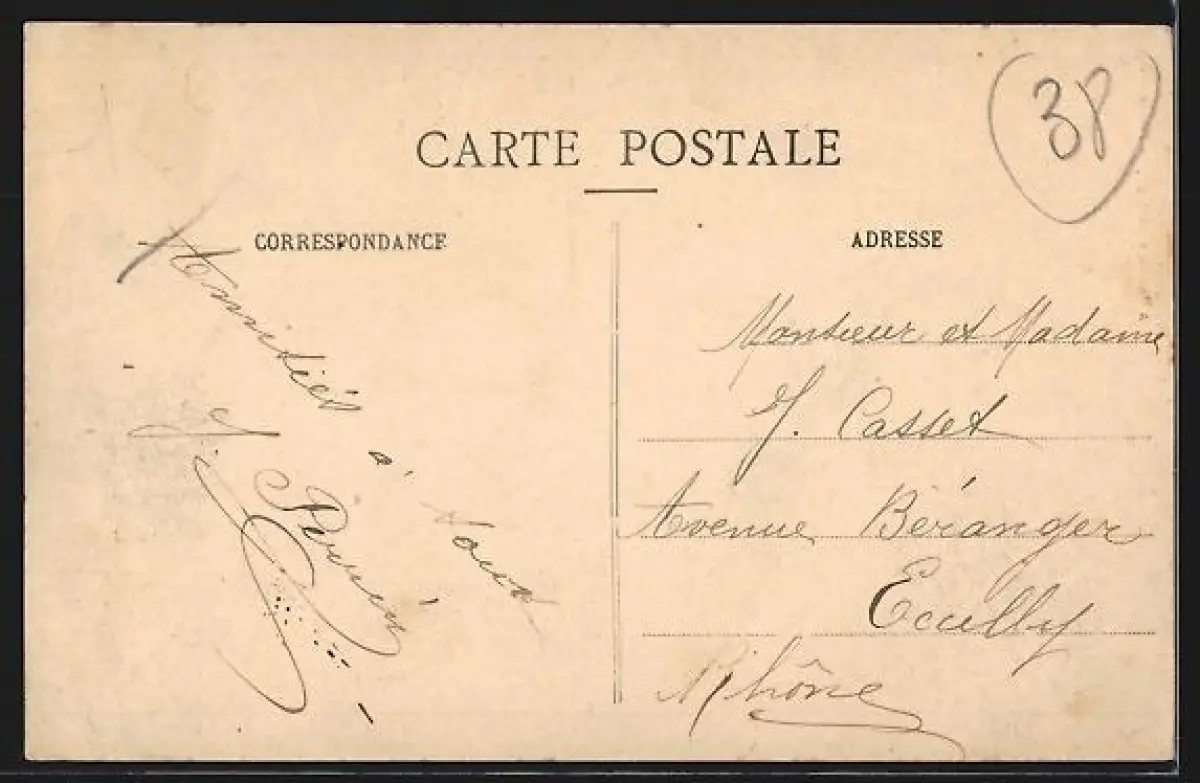 38
CARTE POSTALE
CORRESPONDANCE
ADRESSE
Amitiés à tous
Monsieur et Madame
J. Casset
Avenue Béranger
Ecully
Rhône